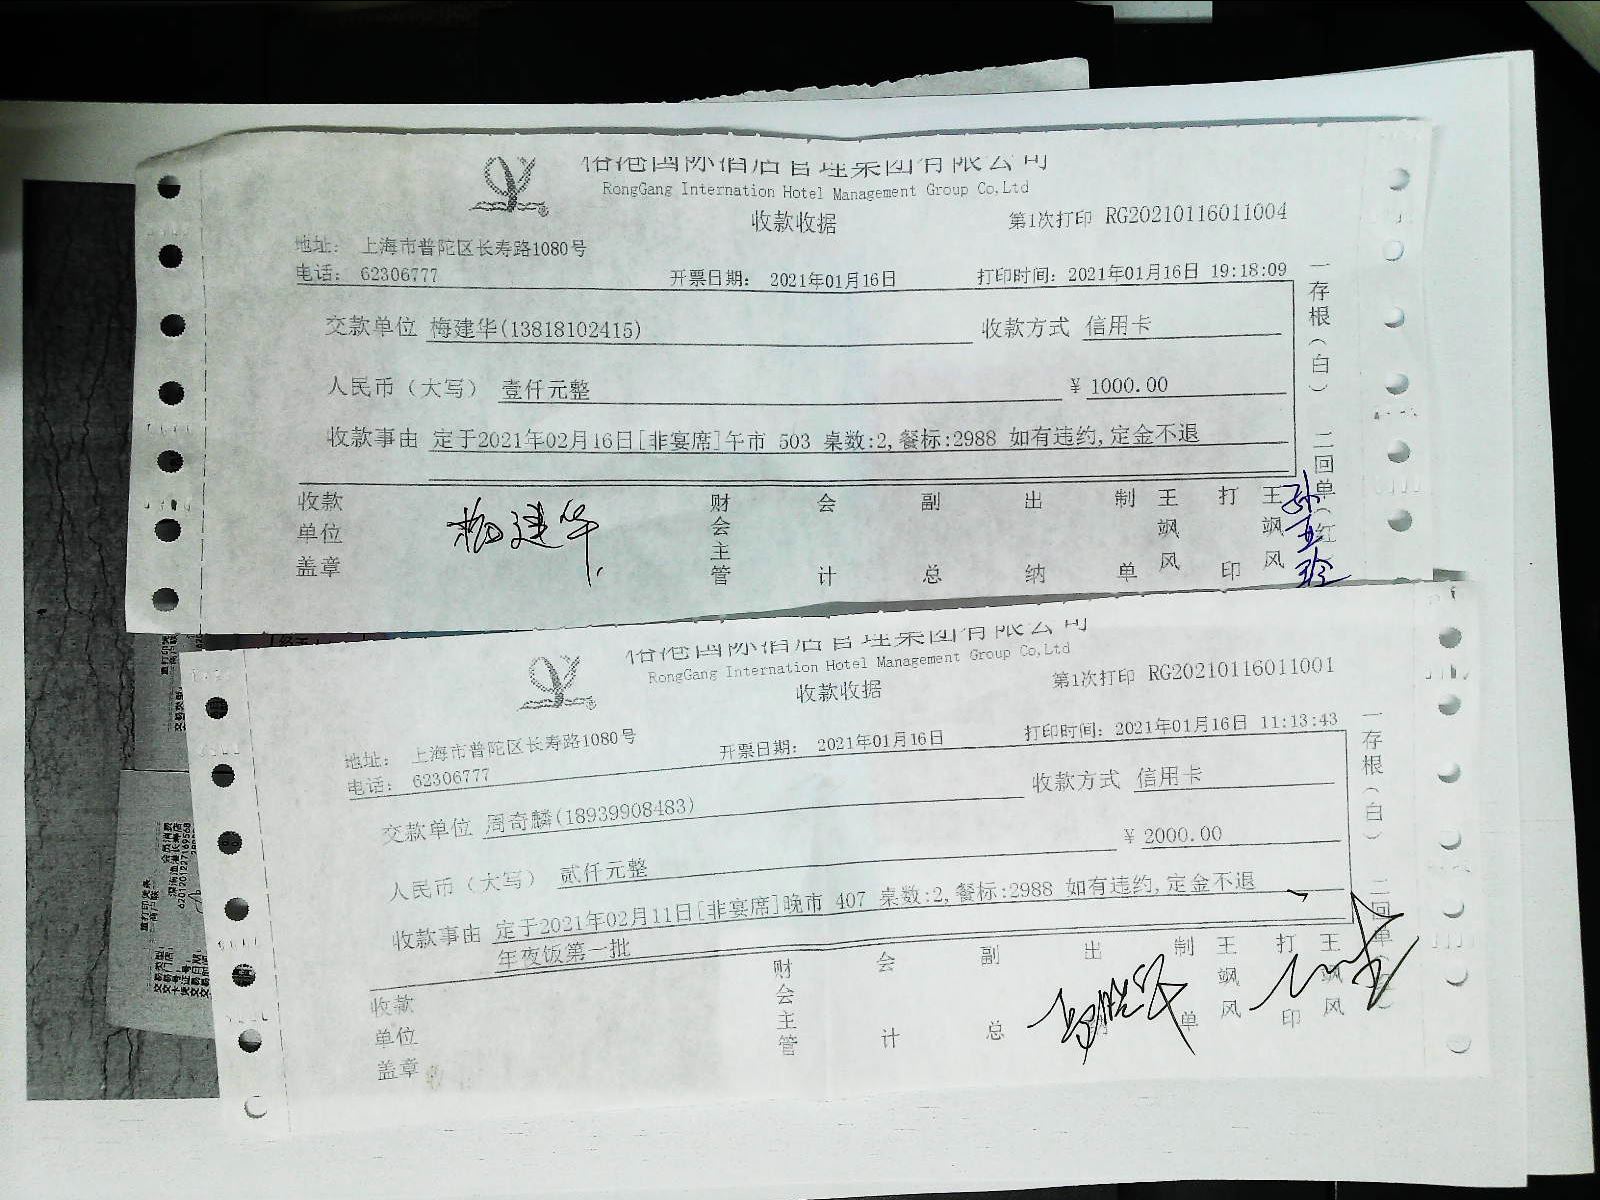 RongGang Internation Hotel Management Group Co,Ltd
收款收据
第1次打印 RG20210116011004
地址： 上海市普陀区长寿路1080号
电话： 62306777
开票日期： 2021年01月16日
打印时间：2021年01月16日 19:18:09
交款单位 梅建华(13818102415)
收款方式 信用卡
人民币（大写） 壹仟元整
¥ 1000.00
收款事由 定于2021年02月16日[非宴席]午市 503 桌数:2,餐标:2988 如有违约,定金不退
一存根（白） 二回单（红
收款单位盖章
梅建华
财会主管
会计
副总
出纳
制单
王飒风
打印
王飒风
孙亚玲
RongGang Internation Hotel Management Group Co,Ltd
收款收据
第1次打印 RG20210116011001
地址： 上海市普陀区长寿路1080号
电话： 62306777
开票日期： 2021年01月16日
打印时间：2021年01月16日 11:13:43
交款单位 周奇麟(18939908483)
收款方式 信用卡
人民币（大写） 贰仟元整
¥ 2000.00
收款事由 定于2021年02月11日[非宴席]晚市 407 桌数:2,餐标:2988 如有违约,定金不退
年夜饭第一批
一存根（白） 二回单
收款单位盖章
财会主管
会计
副总
出
制单
王飒风
打印
王飒风